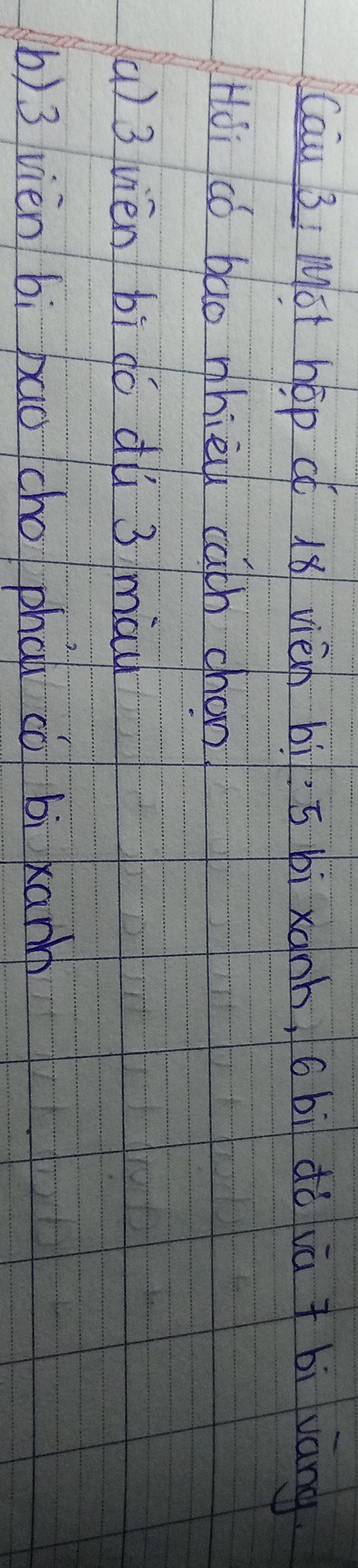 Câu 3: Một hộp có 18 viên bi: 5 bi xanh, 6 bi đỏ và 7 bi vàng.
Hỏi có bao nhiêu cách chọn.
a) 3 viên bi có đủ 3 màu
b) 3 viên bi sao cho phải có bi xanh